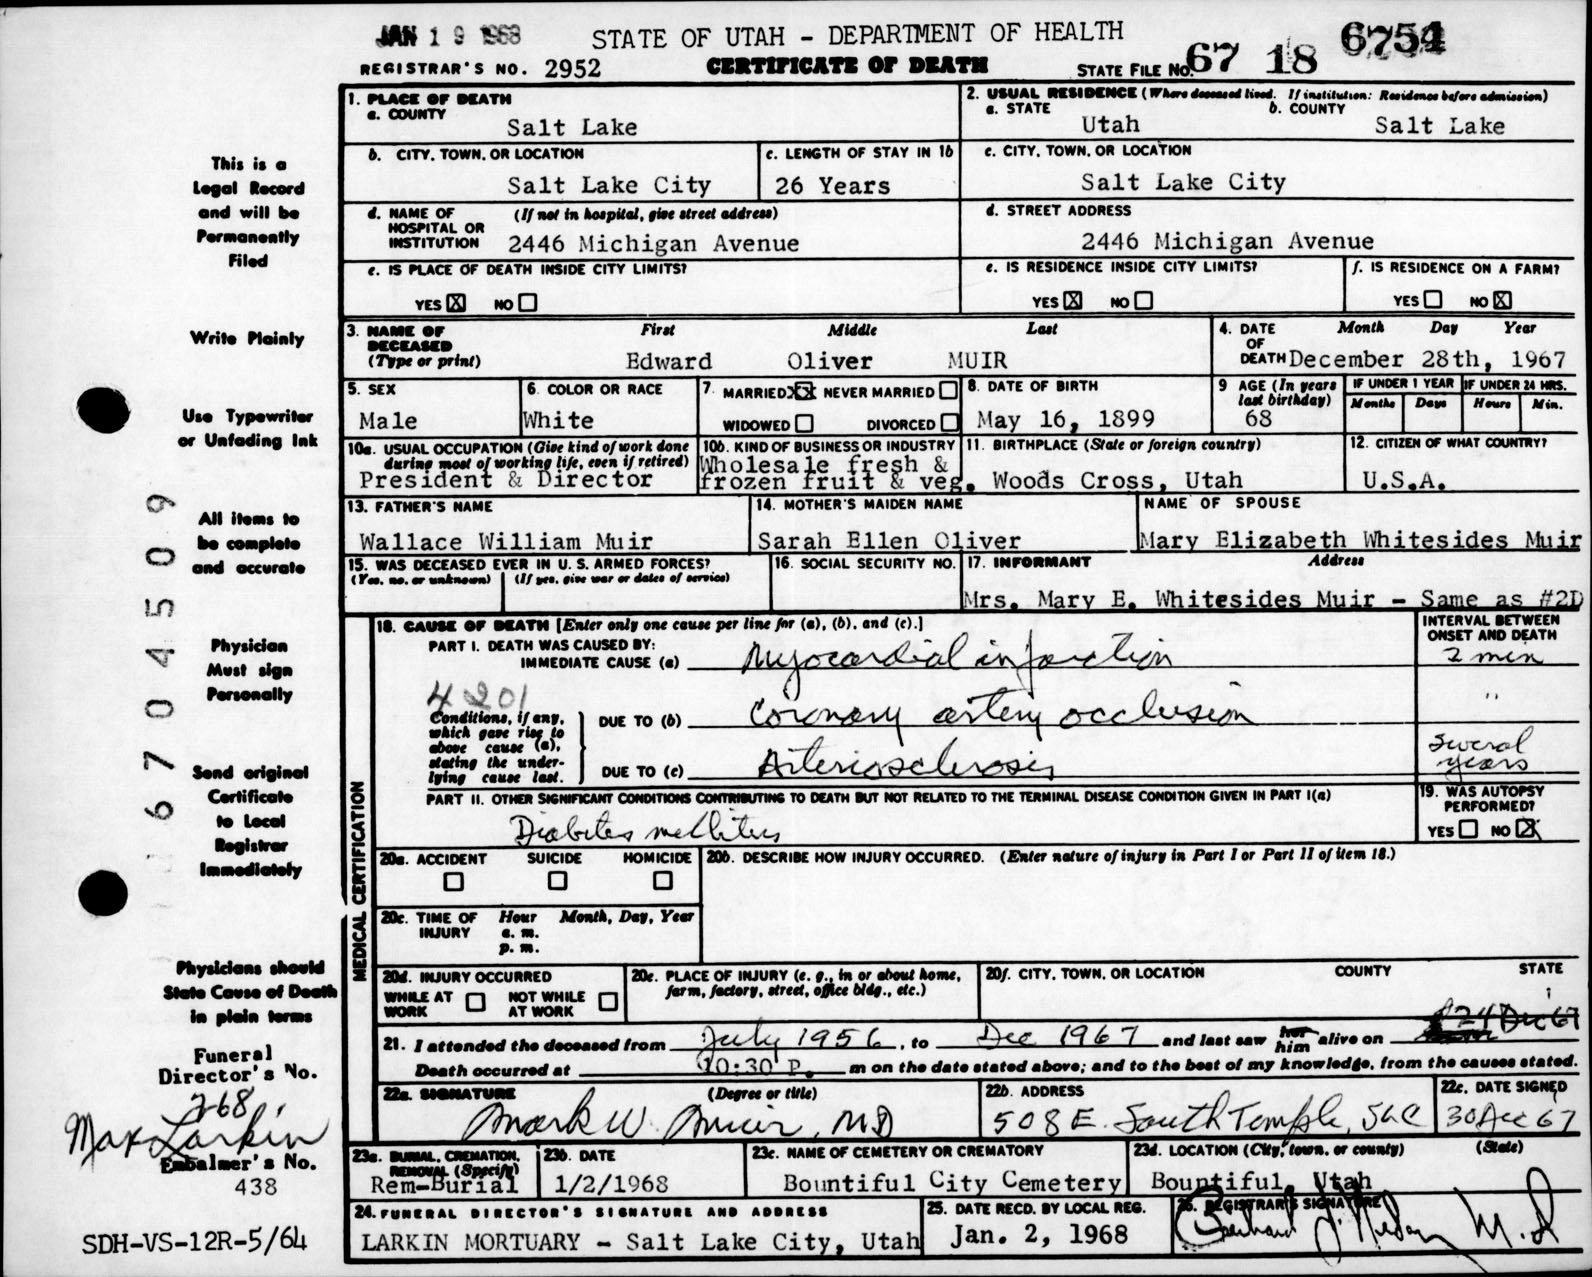 JAN 19 1968
STATE OF UTAH - DEPARTMENT OF HEALTH
REGISTRAR'S NO. 2952
CERTIFICATE OF DEATH
STATE FILE NO. 67 18
This is a
Legal Record
and will be
Permanently
Filed
Write Plainly
Use Typewriter
or Unfading Ink
All items to
be complete
and accurate
Physician
Must sign
Personally
Send original
Certificate
to Local
Registrar
Immediately
Physicians should
State Cause of Death
in plain terms
Funeral
Director's No.
268
Max Larkin
Embalmer's No.
438
SDH-VS-12R-5/64
67 04509
1. PLACE OF DEATH
a. COUNTY
Salt Lake
2. USUAL RESIDENCE (Where deceased lived. If institution: Residence before admission)
a. STATE b. COUNTY
Utah Salt Lake
b. CITY, TOWN, OR LOCATION
Salt Lake City
c. LENGTH OF STAY IN 1b
26 Years
c. CITY, TOWN, OR LOCATION
Salt Lake City
d. NAME OF (If not in hospital, give street address)
HOSPITAL OR
INSTITUTION 2446 Michigan Avenue
d. STREET ADDRESS
2446 Michigan Avenue
e. IS PLACE OF DEATH INSIDE CITY LIMITS?
YES X NO
e. IS RESIDENCE INSIDE CITY LIMITS?
YES X NO
f. IS RESIDENCE ON A FARM?
YES NO X
3. NAME OF First Middle Last
DECEASED
(Type or print) Edward Oliver MUIR
4. DATE Month Day Year
OF
DEATH December 28th, 1967
5. SEX
Male
6. COLOR OR RACE
White
7. MARRIED XX NEVER MARRIED
WIDOWED DIVORCED
8. DATE OF BIRTH
May 16, 1899
9 AGE (In years
last birthday)
68
IF UNDER 1 YEAR IF UNDER 24 HRS.
Months Days Hours Min.
10a. USUAL OCCUPATION (Give kind of work done
during most of working life, even if retired)
President & Director
10b. KIND OF BUSINESS OR INDUSTRY
Wholesale fresh &
frozen fruit & veg.
11. BIRTHPLACE (State or foreign country)
Woods Cross, Utah
12. CITIZEN OF WHAT COUNTRY?
U.S.A.
13. FATHER'S NAME
Wallace William Muir
14. MOTHER'S MAIDEN NAME
Sarah Ellen Oliver
NAME OF SPOUSE
Mary Elizabeth Whitesides Muir
15. WAS DECEASED EVER IN U. S. ARMED FORCES?
(Yes, no, or unknown) (If yes, give war or dates of service)
16. SOCIAL SECURITY NO.
17. INFORMANT Address
Mrs. Mary E. Whitesides Muir - Same as #2D
18. CAUSE OF DEATH [Enter only one cause per line for (a), (b), and (c).]
INTERVAL BETWEEN
ONSET AND DEATH
PART I. DEATH WAS CAUSED BY:
IMMEDIATE CAUSE (a) Myocardial infarction 2 min
4201
Conditions, if any,
which gave rise to
above cause (a),
stating the under-
lying cause last.
DUE TO (b) Coronary artery occlusion "
DUE TO (c) Arteriosclerosis several
years
PART II. OTHER SIGNIFICANT CONDITIONS CONTRIBUTING TO DEATH BUT NOT RELATED TO THE TERMINAL DISEASE CONDITION GIVEN IN PART I(a)
Diabetes mellitus
19. WAS AUTOPSY
PERFORMED?
YES NO X
MEDICAL CERTIFICATION
20a. ACCIDENT SUICIDE HOMICIDE
20b. DESCRIBE HOW INJURY OCCURRED. (Enter nature of injury in Part I or Part II of item 18.)
20c. TIME OF Hour Month, Day, Year
INJURY a. m.
p. m.
20d. INJURY OCCURRED
WHILE AT NOT WHILE
WORK AT WORK
20e. PLACE OF INJURY (e. g., in or about home,
farm, factory, street, office bldg., etc.)
20f. CITY, TOWN, OR LOCATION COUNTY STATE
21. I attended the deceased from July 1956, to Dec 1967 and last saw her him alive on 24 Dec 67
Death occurred at 10:30 P. m on the date stated above; and to the best of my knowledge, from the causes stated.
22a. SIGNATURE (Degree or title)
Mark W. Muir, MD
22b. ADDRESS
508 E. South Temple, SLC
22c. DATE SIGNED
30 Dec 67
23a. BURIAL, CREMATION,
REMOVAL (Specify)
Rem-Burial
23b. DATE
1/2/1968
23c. NAME OF CEMETERY OR CREMATORY
Bountiful City Cemetery
23d. LOCATION (City, town, or county) (State)
Bountiful, Utah
24. FUNERAL DIRECTOR'S SIGNATURE AND ADDRESS
LARKIN MORTUARY - Salt Lake City, Utah
25. DATE RECD. BY LOCAL REG.
Jan. 2, 1968
26. REGISTRAR'S SIGNATURE
M.D